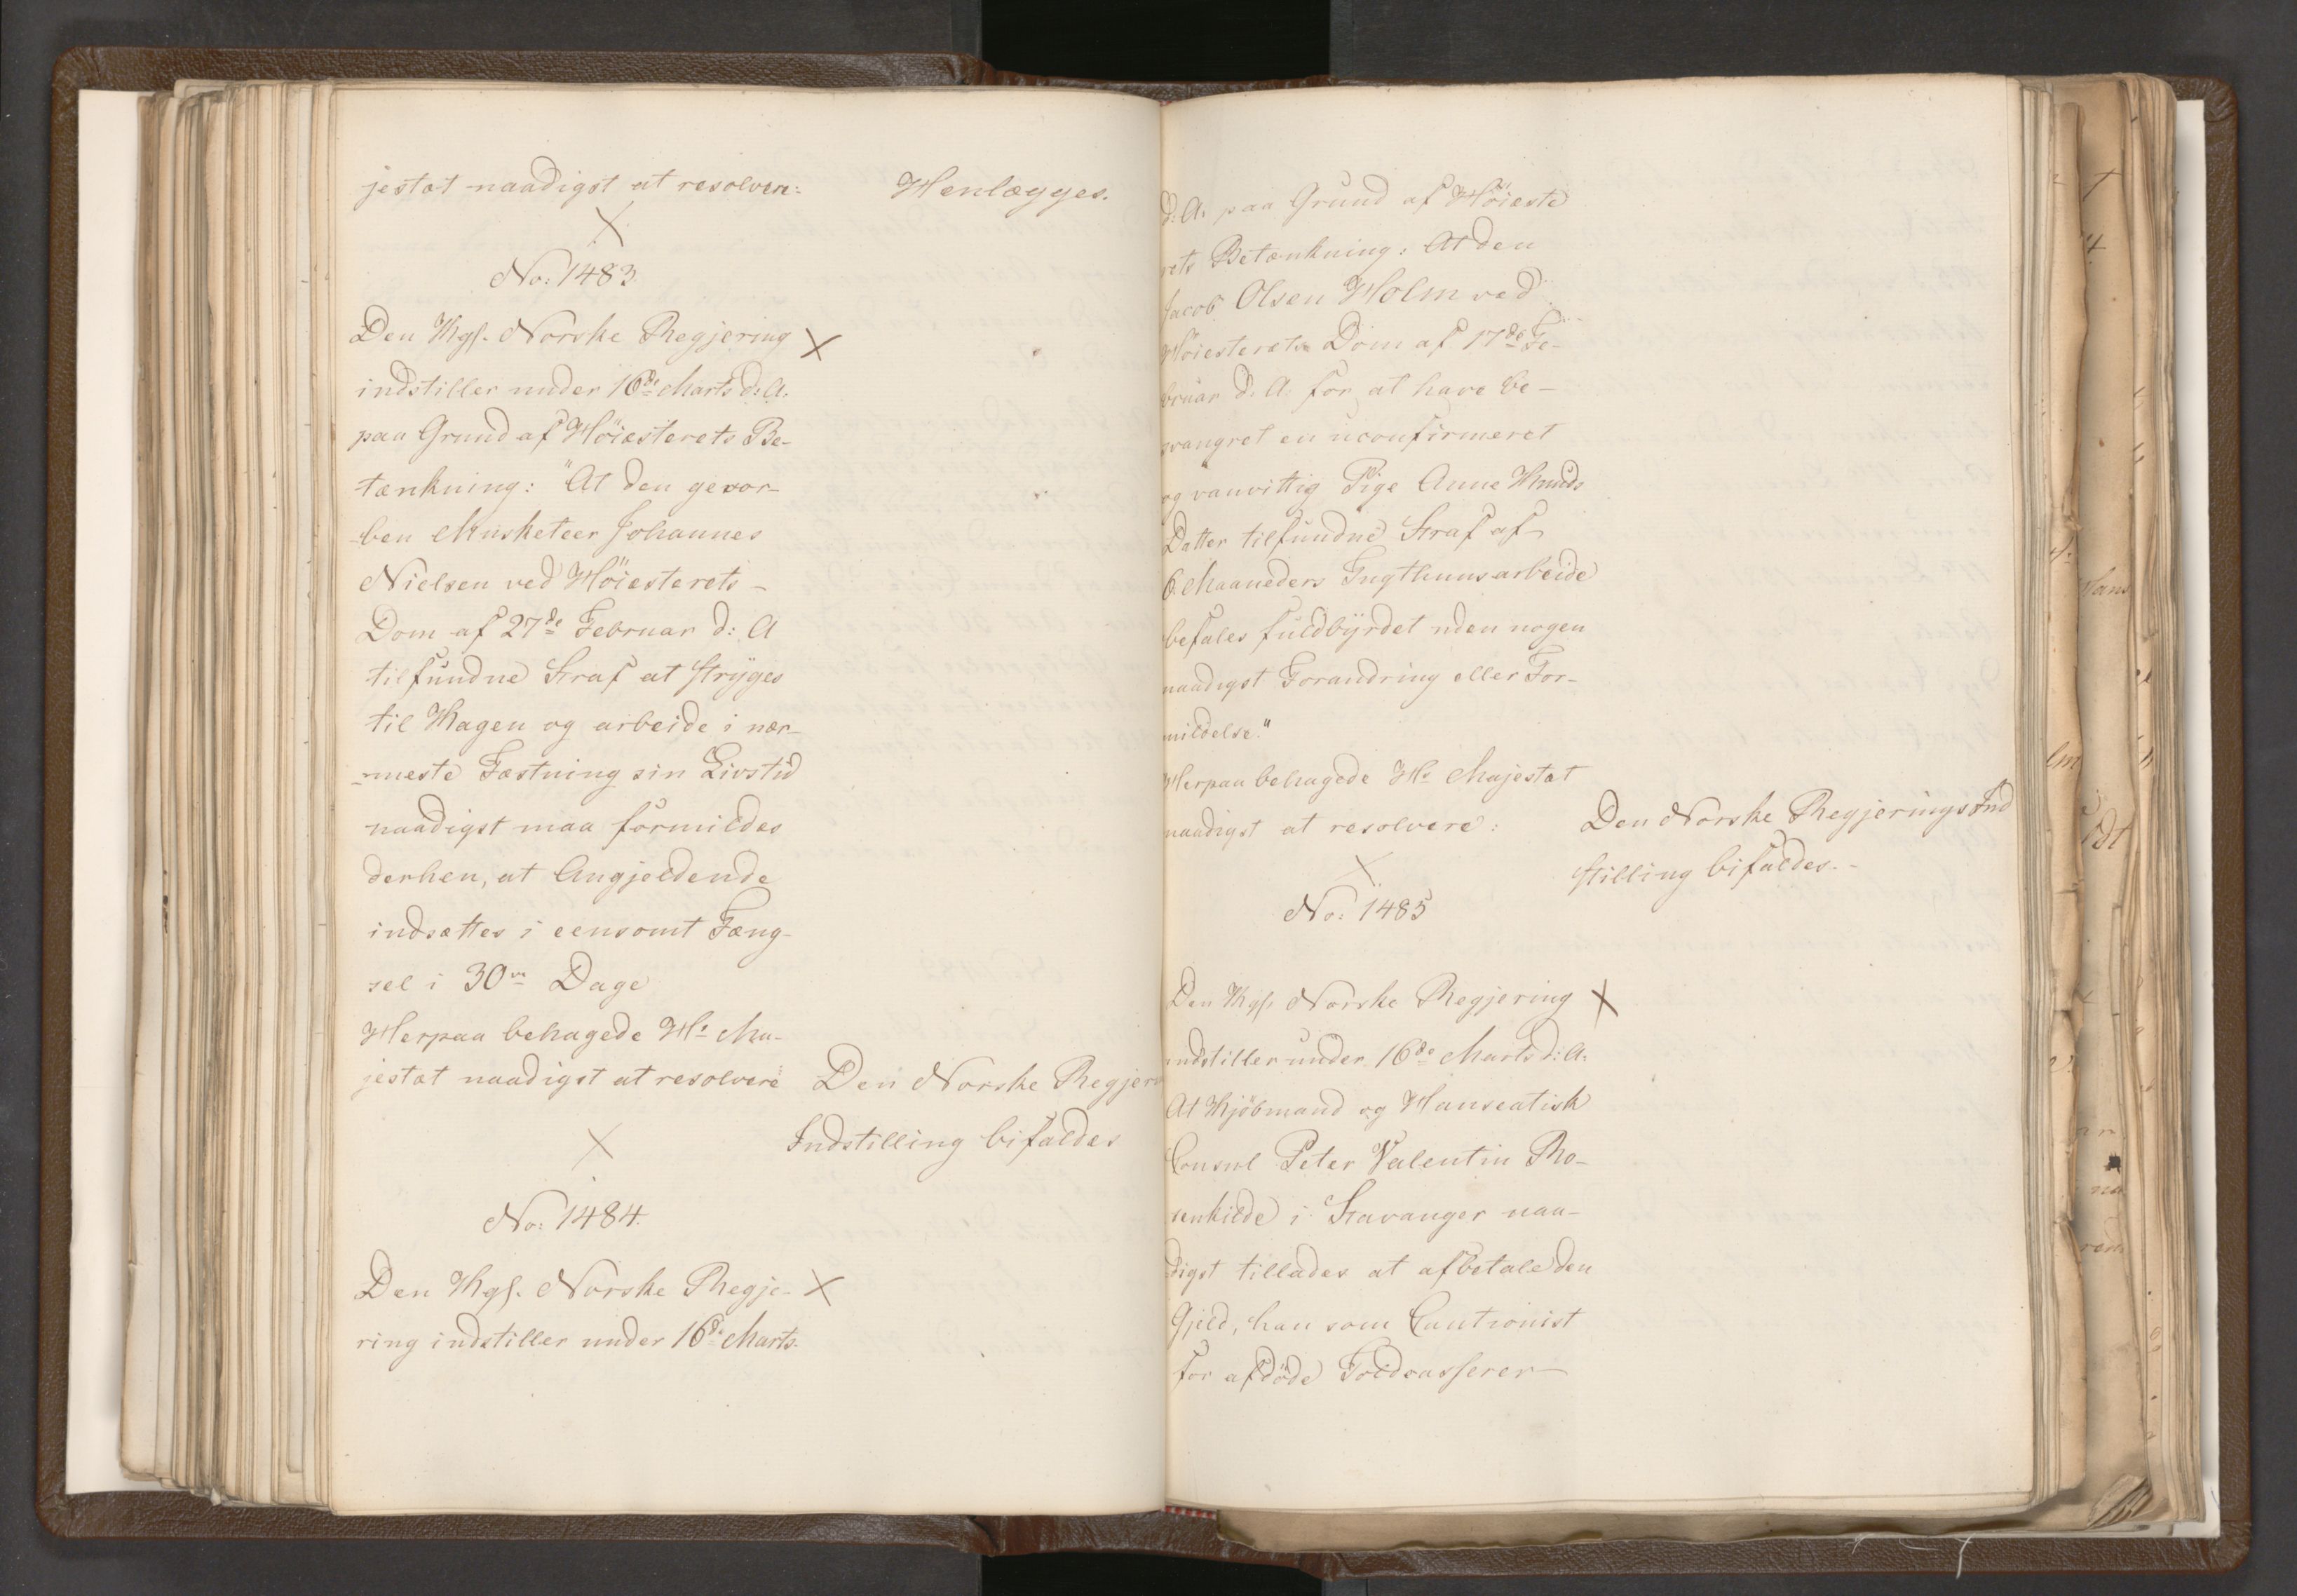 jestæt naadigst at resolvere:
Henlægges.
No: 1483.
Den Kgl. Norske Regjering
indstiller under 16de Marts d: A.
paa Grund af Höiesterets Be-
tænkning: "At den gevor-
ben Musketeer Johannes
Nielsen ved Höiesterets-
Dom af 27de Februar d: A
tilfundne Straf at stryges
til Kagen og arbeide i nær-
meste Fæstning sin Livstid
naadigst maa formildes
derhen, at Angjeldende
indsættes i eensomt Fæng-
sel i 30ve Dage
Herpaa behagede Hs Ma-
jestæt naadigst at resolvere
Den Norske Regjer
Indstilling bifaldes
No: 1484.
Den Kgl. Norske Regje-
ring indstiller under 16de Marts
d: A. paa Grund af Höieste
rets Betænkning: At den
Jacob Olsen Holm ved
Höiesterets Dom af 17de Fe-
bruar d. A. for at have be-
svangret en uconfirmeret
og vanvittig Pige Anne Knuds
Datter tilfundne Straf af
6. Maaneders Tugthuusarbeide
befales fuldbyrdet uden nogen
naadigst Forandring eller For-
mildelse."
Herpaa behagede Hs Majestæt
naadigst at resolvere:
Den Norske Regjerings Ind
stilling bifaldes.-
No: 1485
Den Kgl. Norske Regjering
indstiller under 16de Marts d: A.
At Kjöbmand og Hanseatisk
Consul Peter Valentin Ro-
senkilde i Stavanger naa-
digst tillades at afbetale den
Gjeld, han som Cautionist
for afdöde Toldcasserer